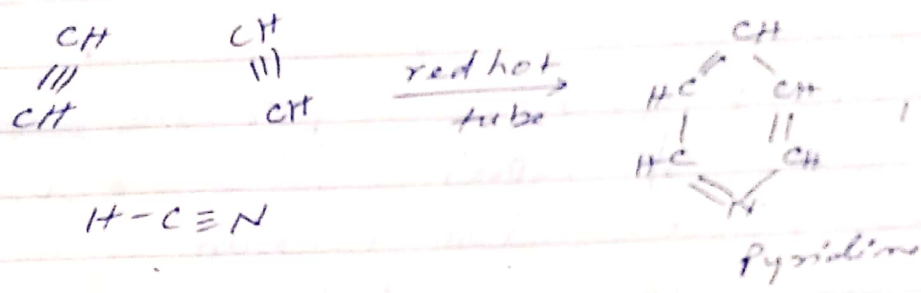 CH CH
||| |||
CH CH
red hot
tube
H-C≡N
CH
HC CH
HC CH
N
Pyridine